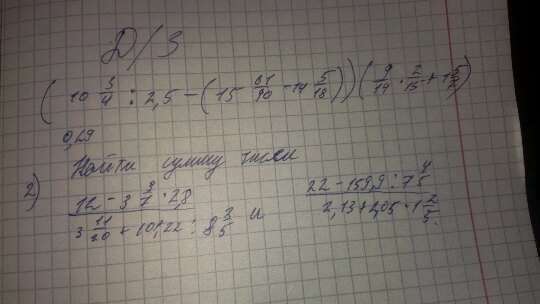 Д/З
(10 3/4 : 2,5 - (15 61/90 - 14 5/18)) (9/14 · 2/15 + 1 5/7)
0,29
Найти сумму чисел
2) (12 - 3 3/7 · 2,8) / (3 11/20 + 101,22 : 8 3/5) и (22 - 159,9 : 7 4/5) / (2,13 + 2,05 · 1 2/5)